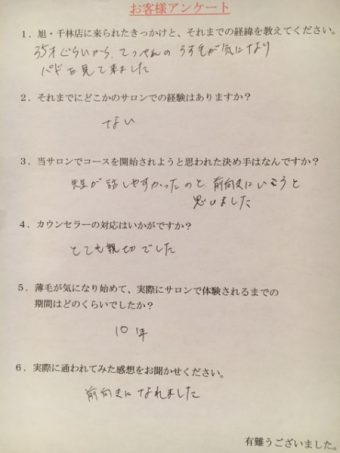 お客様アンケート
1．旭・千林店に来られたきっかけと、それまでの経緯を教えてください。
35才ぐらいから、てっぺんのうす毛が気になり
パドを見て来ました
2．それまでにどこかのサロンでの経験はありますか？
ない
3．当サロンでコースを開始されようと思われた決め手はなんですか？
先生が話しやすかったのと前向きにいこうと
思いました
4．カウンセラーの対応はいかがですか？
とても親切でした
5．薄毛が気になり始めて、実際にサロンで体験されるまでの
期間はどのくらいでしたか？
10年
6．実際に通われてみた感想をお聞かせください。
前向きになれました
有難うございました。